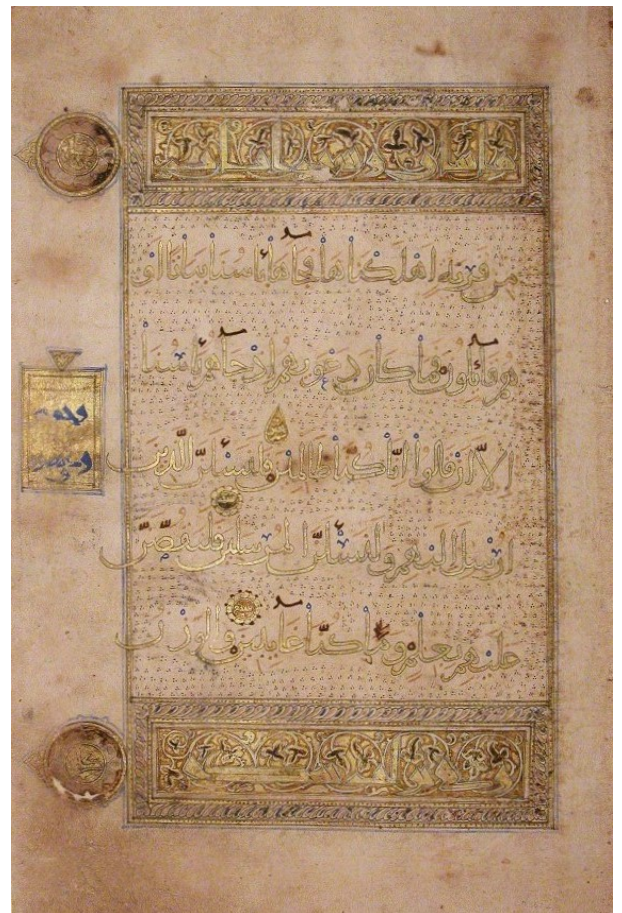 من قرية اهلكناها فجاءها بأسنا بياتا او
هم قائلون فما كان دعويهم اذ جاءهم بأسنا
الا ان قالوا انا كنا ظالمين فلنسئلن الذين
ارسل اليهم ولنسئلن المرسلين فلنقصن
عليهم بعلم وما كنا غائبين والوزن